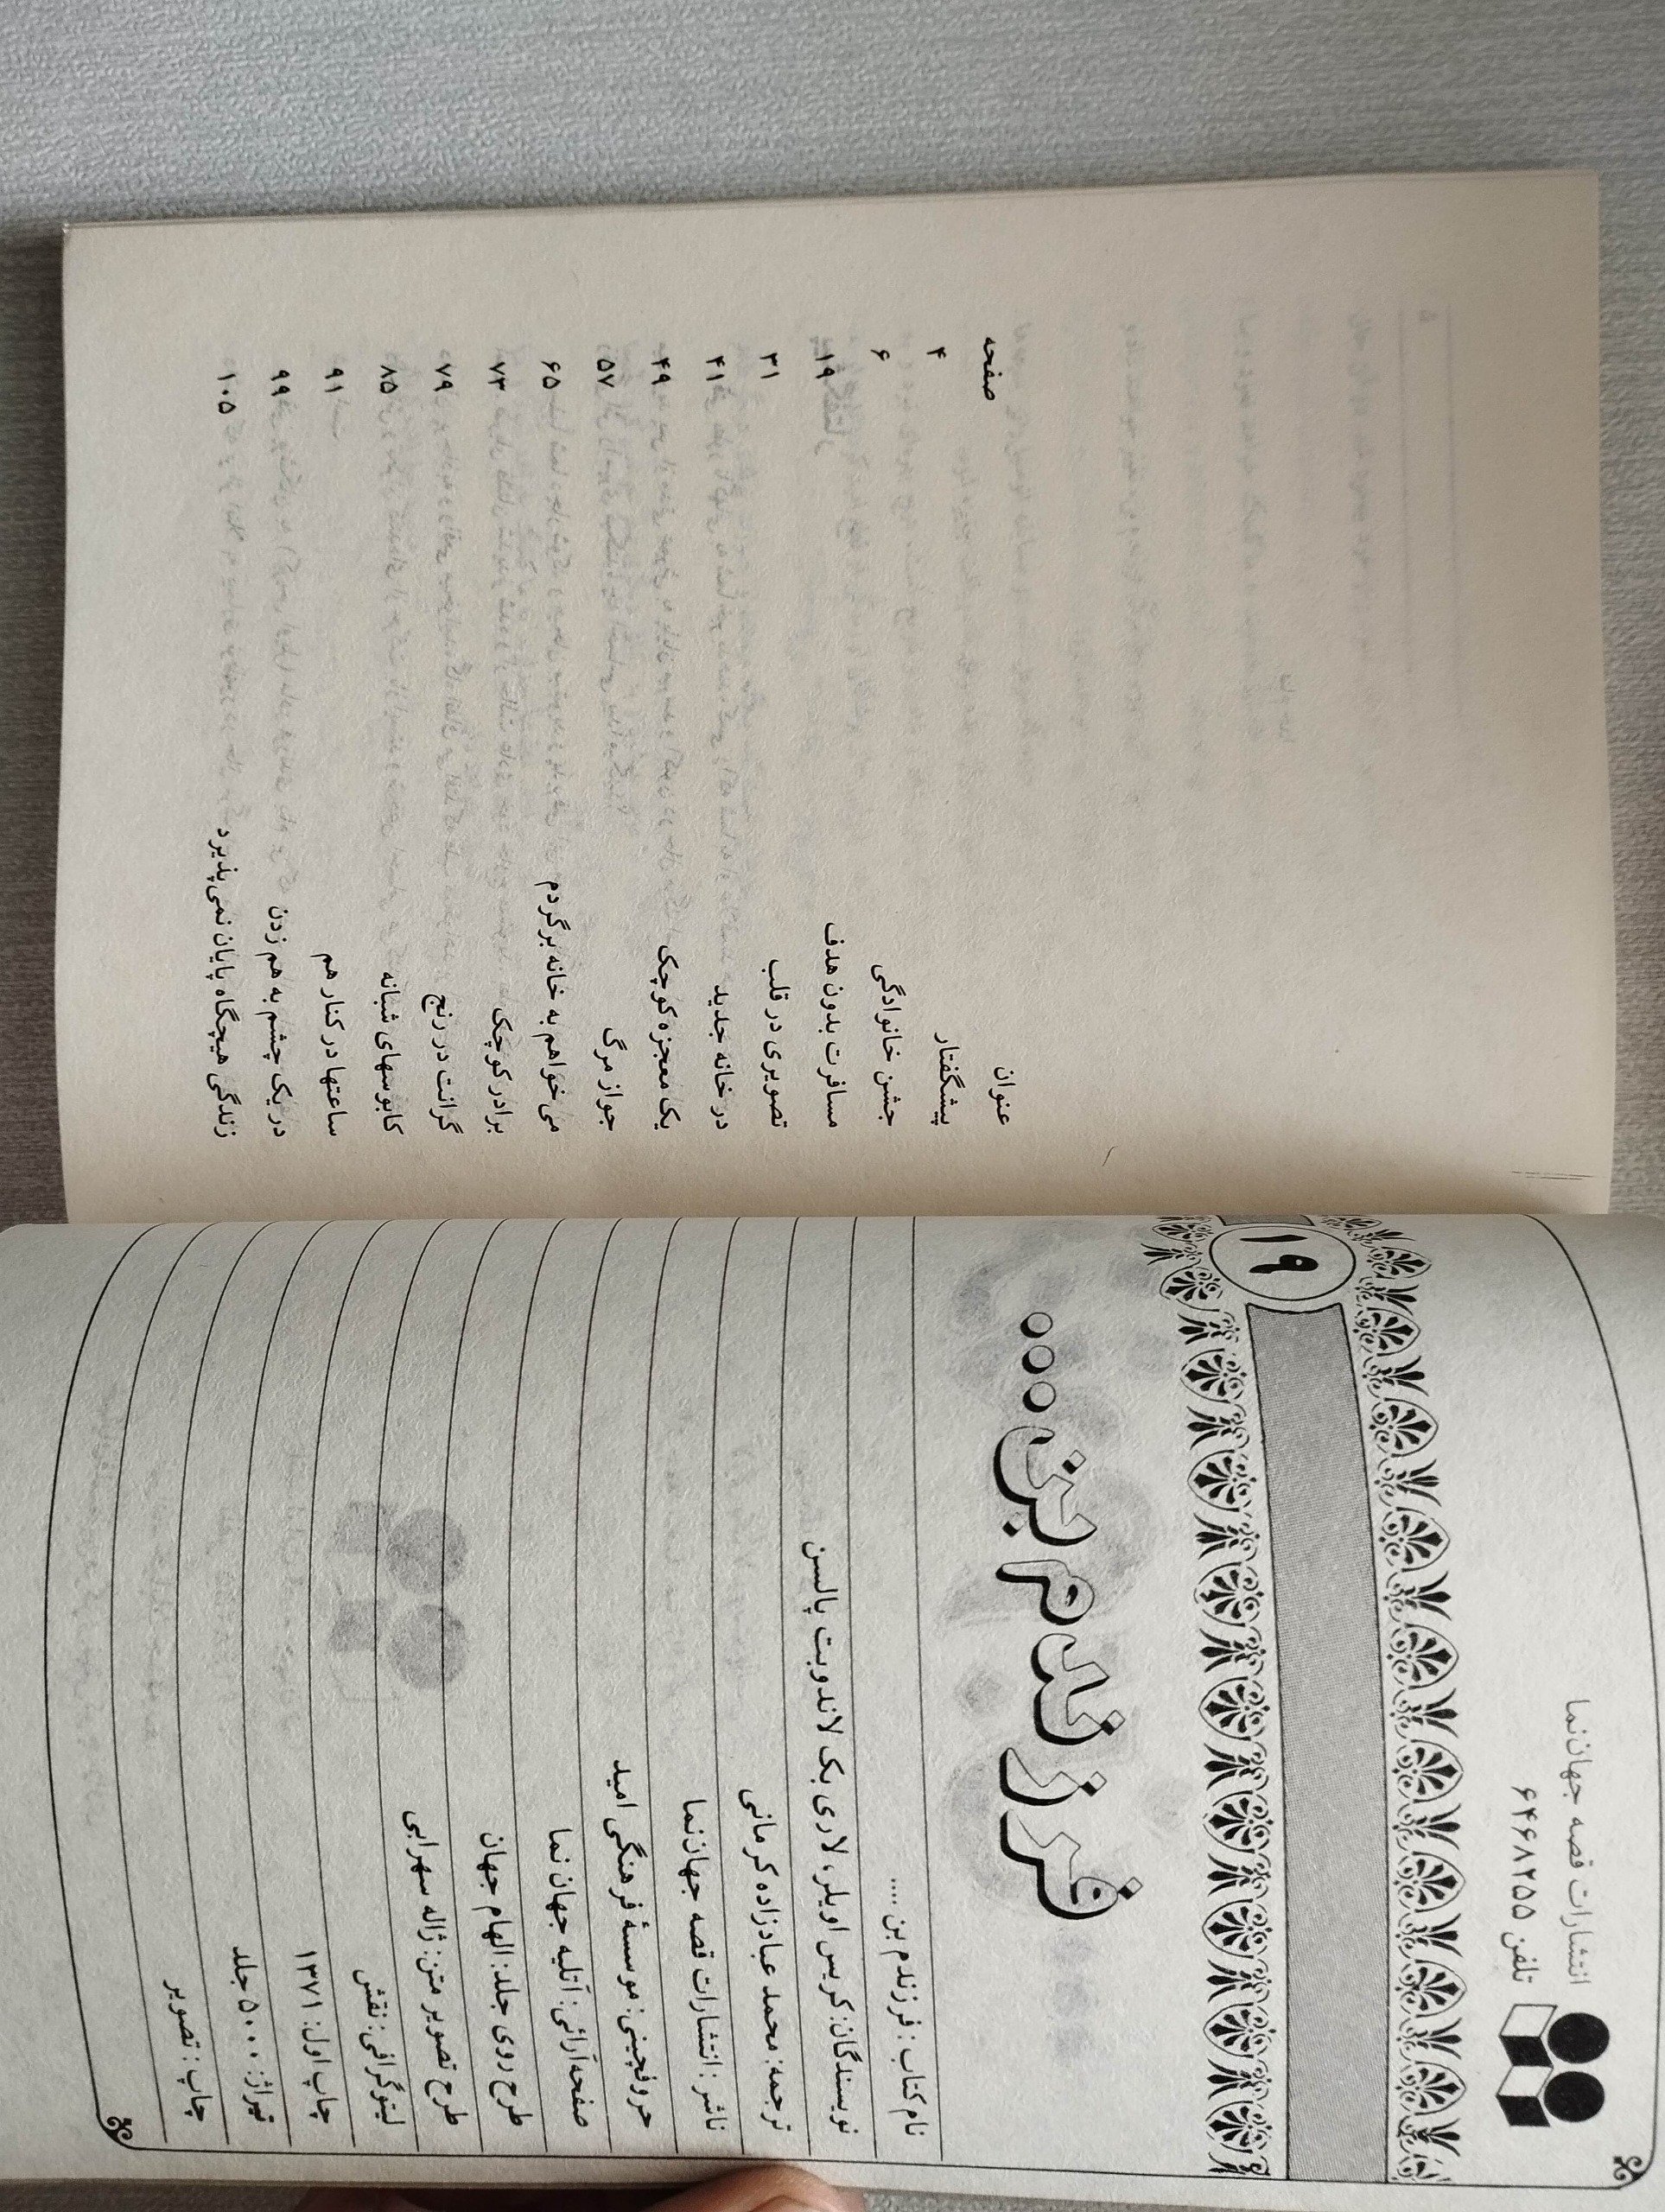 انتشارات قصه جهان‌نما
تلفن ۶۴۶۸۲۵۵
۱۹
فرزندم بن...
نام کتاب: فرزندم بن....
نویسندگان: کریس اویلر، لاری بک لاندوبت پالسن
ترجمه: محمد عبادزاده کرمانی
ناشر: انتشارات قصه جهان‌نما
حروفچینی: موسسهٔ فرهنگی امید
صفحه‌آرائی: آتلیه جهان نما
طرح روی جلد: الهام جهان
طرح تصویر متن: ژاله سهرابی
لیتوگرافی: نقش
چاپ اول: ۱۳۷۱
تیراژ: ۵۰۰۰ جلد
چاپ: تصویر
عنوان صفحه
پیشگفتار ۴
جشن خانوادگی ۶
مسافرت بدون هدف ۱۹
تصویری در قلب ۳۱
در خانه جدید ۴۱
یک معجزه کوچک ۴۹
جواز مرگ ۵۷
می خواهم به خانه برگردم ۶۵
برادر کوچک ۷۳
گرانت در رنج ۷۹
کابوسهای شبانه ۸۵
ساعتها در کنار هم ۹۱
در یک چشم به هم زدن ۹۹
زندگی هیچگاه پایان نمی پذیرد ۱۰۵